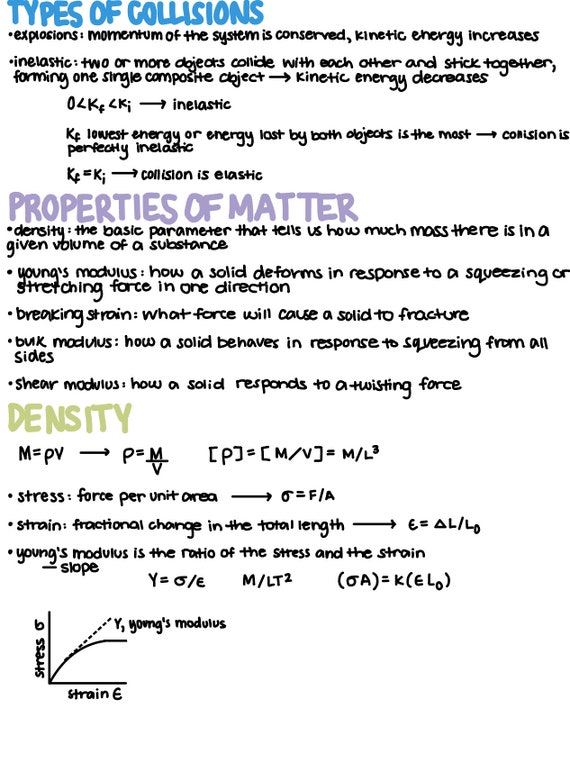 TYPES OF COLLISIONS
•explosions: momentum of the system is conserved, kinetic energy increases
•inelastic: two or more objects collide with each other and stick together,
forming one single composite object → kinetic energy decreases
0<Kf<Ki → inelastic
Kf lowest energy or energy lost by both objects is the most → collision is
perfectly inelastic
Kf=Ki → collision is elastic
PROPERTIES OF MATTER
•density: the basic parameter that tells us how much mass there is in a
given volume of a substance
•young's modulus: how a solid deforms in response to a squeezing or
stretching force in one direction
•breaking strain: what force will cause a solid to fracture
•bulk modulus: how a solid behaves in response to squeezing from all
sides
•shear modulus: how a solid responds to a twisting force
DENSITY
M=ρV → ρ=M/V [ρ]=[M/V]=M/L³
•stress: force per unit area → σ=F/A
•strain: fractional change in the total length → ε=ΔL/L₀
•young's modulus is the ratio of the stress and the strain
— slope
Y=σ/ε M/LT² (σA)=K(εL₀)
Y, young's modulus
stress σ
strain ε